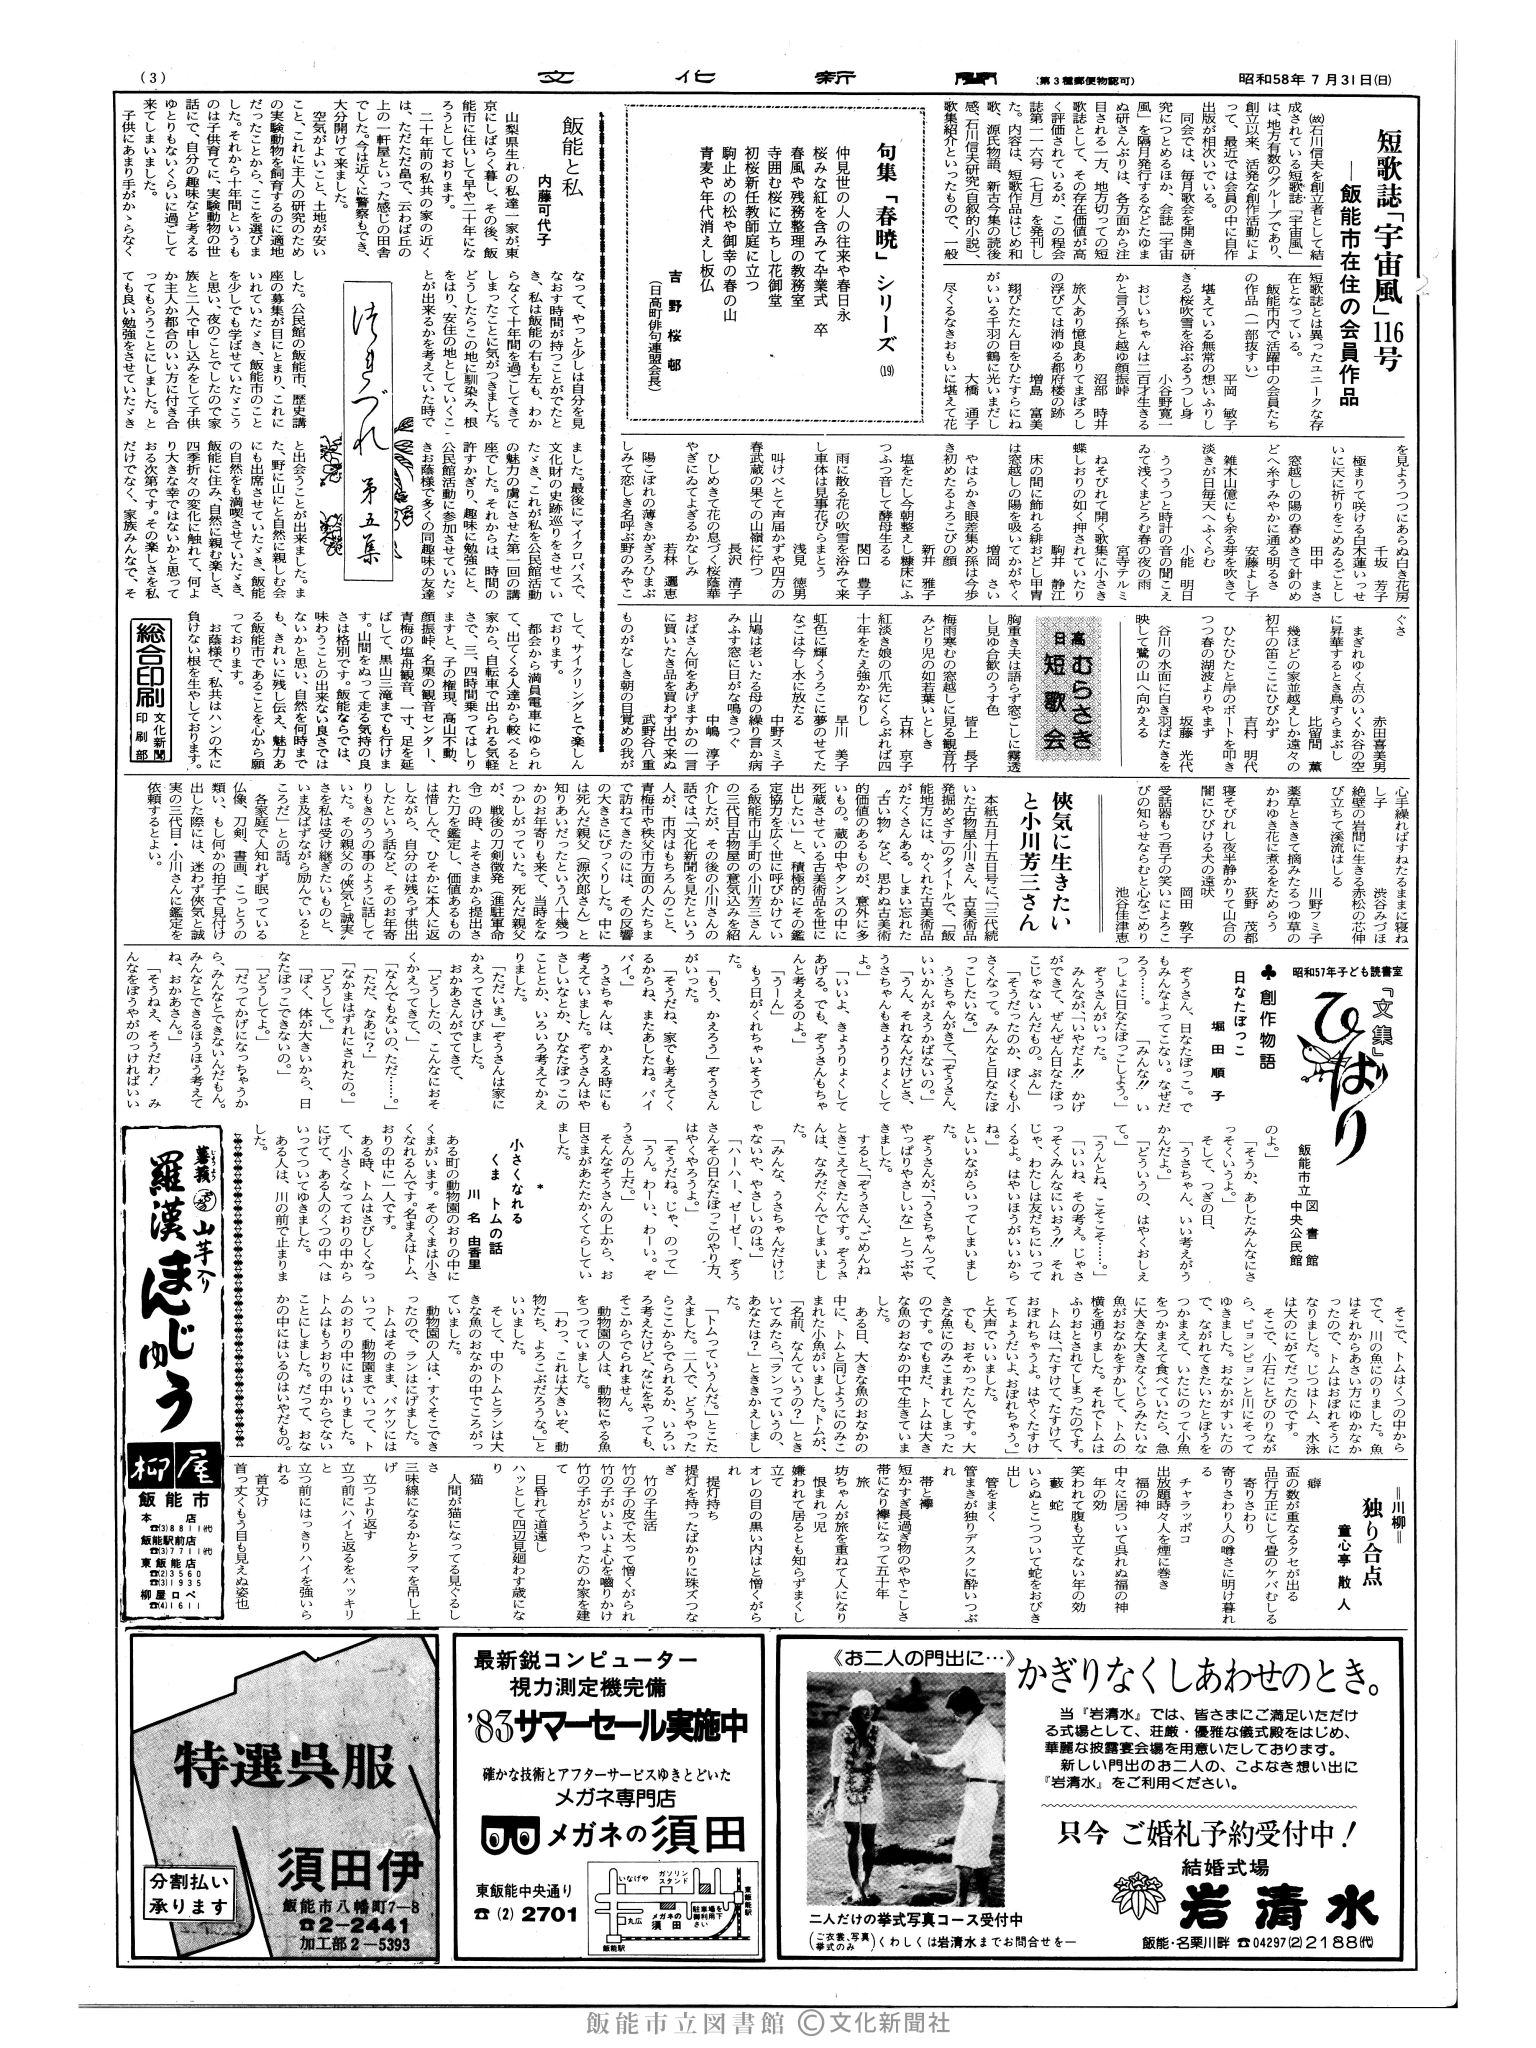 (3)
文化新聞
(第3種郵便物認可)
昭和58年7月31日(日)
短歌誌「宇宙風」116号
―飯能市在住の会員作品
㈱石川信夫を創立者として結
成されている短歌誌「宇宙風」
は、地方有数のグループであり、
創立以来、活発な創作活動によ
って、最近では会員の中に自作
出版が相次いでいる。
同会では、毎月歌会を開き研
究につとめるほか、会誌「宇宙
風」を隔月発行するなどたゆま
ぬ研さんぶりは、各方面から注
目される一方、地方切っての短
歌誌として、その存在価値が高
く評価されているが、この程会
誌第一一六号(七月)を発刊し
た。内容は、短歌作品はじめ和
歌、源氏物語、新古今集の読後
感、石川信夫研究(自叙的小説)、
歌集紹介といったもので、一般
短歌誌とは異ったユニークな存
在となっている。
飯能市内で活躍中の会員たち
の作品(一部抜すい)
平岡 敏子
堪えている無常の想いふりし
きる桜吹雪を浴ぶるうつし身
小谷野寛一
おじいちゃんは二百才生きる
かと言う孫と越ゆ顔振峠
沼部 時井
旅人あり憶良ありてまぼろし
の浮びては消ゆる都府楼の跡
増島 富美
翔びたたん日をひたすらにね
がいいる千羽の鶴に光いまだし
大橋 通子
尽くるなきおもいに堪えて花
を見ようつつにあらぬ白き花房
千坂 芳子
極まりて咲ける白木蓮いっせ
いに天に祈りをこめゐるごとし
田中 まさ
窓越しの陽の春めきて針のめ
どへ糸すみやかに通る明るさ
安藤よし子
雑木山億にも余る芽を吹きて
淡きが日毎天へふくらむ
小能 明日
うつうつと時計の音の聞こえ
ゐて浅くまどろむ春の夜の雨
宮寺テルミ
ねそびれて開く歌集に小さき
蝶しおりの如く押されていたり
駒井 静江
床の間に飾れる緋おどし甲冑
は窓越しの陽を吸いてかがやく
増岡 さい
やはらかき眼差集め孫は今歩
き初めたるよろこびの顔
新井 雅子
塩をたし今朝整えし糠床にふ
つふつ音して酵母生るる
関口 豊子
雨に散る花の吹雪を浴みて来
し車体は見事花びらまとう
浅見 徳男
叫けべとて声届かずや四方の
春武蔵の果ての山嶺に佇つ
長沢 清子
ひしめきて花の息づく桜蔭華
やぎにゐてよぎるかなしみ
若林 邇恵
陽こぼれの薄きかぎろひまぶ
しみて恋しき名呼ぶ野のみやこ
ぐさ
赤田喜美男
まぎれゆく点のいくか谷の空
に昇華するとき鳥すらまぶし
比留間 薫
幾ほどの家並越えしか遠々の
初午の笛ここにひびかず
吉村 明代
ひたひたと岸のボートを叩き
つつ春の湖波よりやまず
坂藤 光代
谷川の水面に白き羽ばたきを
映して鷺の山へ向かえる
句集「春暁」シリーズ(19)
仲見世の人の往来や春日永
桜みな紅を含みて卒業式 卒
春風や残務整理の教務室
寺囲む桜に立ちし花御堂
初桜新任教師庭に立つ
駒止めの松や御幸の春の山
青麦や年代消えし板仏
吉野桜邨
(日高町俳句連盟会長)
飯能と私
内藤可代子
山梨県生れの私達一家が東
京にしばらく暮し、その後、飯
能市に住いして早や二十年にな
ろうとしております。
二十年前の私共の家の近く
は、ただただ畠で、云わば丘の
上の一軒屋といった感じの田舎
でした。今は近くに警察もでき、
大分開けて来ました。
空気がよいこと、土地が安い
こと、これに主人の研究のため
の実験動物を飼育するのに適地
だったことから、ここを選びま
した。それから十年間というも
のは子供育てに、実験動物の世
話にで、自分の趣味など考える
ゆとりもないくらいに過ごして
来てしまいました。
子供にあまり手がかゝらなく
なって、やっと少しは自分を見
なおす時間が持つことがでたと
き、私は飯能の右も左も、わか
らなくて十年間を過ごしてきて
しまったことに気がつきました。
どうしたらこの地に馴染み、根
をはり、安住の地としていくこ
とが出来るかを考えていた時で
した。公民館の飯能市、歴史講
座の募集が目にとまり、これに
いれていたゞき、飯能市のこと
を少しでも学ばせていたゞこう
と思い、夜のことでしたので家
族と二人で申し込みをして子供
か主人か都合のいい方に付き合
ってもらうことにしました。と
ても良い勉強をさせていたゞき
ました。最後にマイクロバスで、
文化財の史跡巡りをさせてい
たゞき、これが私を公民館活動
の魅力の虜にさせた第一回の講
座でした。それからは、時間の
許すかぎり、趣味に勉強にと、
公民館活動に参加させていたゞ
きお蔭様で多くの同趣味の友達
と出会うことが出来ました。ま
た、野に山にと自然に親しむ会
にも出席させていたゞき、飯能
の自然をも満喫させていたゞき、
飯能に住み、自然に親む楽しさ、
四季折々の変化に触れて、何よ
り大きな幸ではないかと思って
おる次第です。その楽しさを私
だけでなく、家族みんなで、そ
して、サイクリングとで楽しん
でおります。
都会から満員電車にゆられ
て、出てくる人達から較べると
家から、自転車で出られる気軽
さで、三、四時間乗ってはしり
ますと、子の権現、高山不動、
顔振峠、名栗の観音センター、
青梅の塩舟観音、一寸、足を延
ばして、黒山三滝までも行けま
す。山間をぬって走る気持の良
さは格別です。飯能ならでは、
味わうことの出来ない良さでは
ないかと思い、自然を何時まで
も、きれいに残し伝え、魅力あ
る飯能市であることを心から願
っております。
お蔭様で、私共はハンの木に
負けない根を生やしております。
つれづれ 第五集
総合印刷
文化新聞
印刷部
高 むらさき
日 短歌会
胸重き夫は語らず窓ごしに霧透
し見ゆ合歓のうす色
皆上 長子
梅雨寒むの窓越しに見る観音竹
みどり児の如若葉いとしき
古林 京子
紅淡き娘の爪先にくらぶれば四
十年をたえ強かなりし
早川 美子
虹色に輝くうろこに夢のせてた
なごは今し水に放たる
中野スミ子
山鳩は老いたる母の繰り言か病
みふす窓に日がな鳴きつぐ
中嶋 淳子
おばさん何をあげますかの一言
に買いたき品を買わず出で来ぬ
武野谷八重
ものがなしき朝の目覚めの我が
心手繰ればすねたるままに寝ね
し子
渋谷みづほ
絶壁の岩間に生きる赤松の芯伸
び立ちて溪流はしる
川野フミ子
薬草とききて摘みたるつゆ草の
かわゆき花に煮るをためらう
荻野 茂都
寝そびれし夜半静かりて山合の
闇にひびける犬の遠吠
岡田 敦子
受話器もつ吾子の笑いによろこ
びの知らせならむと心なごめり
池谷佳津恵
俠気に生きたい
と小川芳三さん
本紙五月十五日号に、「三代続
いた古物屋小川さん、古美術品
発掘めざす」のタイトルで、「飯
能地方には、かくれた古美術品
がたくさんある。しまい忘れた
〝古い物〟など、思わぬ古美術
的価値のあるものが、意外に多
いもの。蔵の中やタンスの中に
死蔵させている古美術品を世に
出したい」と、積極的にその鑑
定協力を広く世に呼びかけてい
る飯能市山手町の小川芳三さん
の三代目古物屋の意気込みを紹
介したが、その後の小川さんの
話では、「文化新聞を見たという
人が、市内はもちろんのこと、
青梅市や秩父市方面の人たちま
で訪ねてきたのには、その反響
の大きさにびっくりした。中に
は死んだ親父(源次郎さん)と
知りあいだったという八十幾つ
かのお年寄りも来て、当時をな
つかしがっていた。死んだ親父
が、戦後の刀剣徴発(進駐軍命
令)の時、よそさまから提出さ
れた刀を鑑定し、価値あるもの
は惜しんで、ひそかに本人に返
しながら、自分のは残らず供出
したという話など、そのお年寄
りもきのうの事のように話して
いた。その親父の〝俠気と誠実〟
さを私は受け継ぎたいものと、
いま及ばずながら励んでいると
ころだ」との話。
各家庭で人知れず眠っている
仏像、刀剣、書画、こっとうの
類い、もし何かの拍子で見付け
出した際には、迷わず俠気と誠
実の三代目・小川さんに鑑定を
依頼するとよい。
昭和57年子ども読書室
『文集』
ひばり
飯能市立 図書館
中央公民館
♣創作物語
日なたぼっこ
堀田順子
ぞうさん、日なたぼっこ。で
もみんなよってこない。なぜだ
ろう……。 「みんな!! い
っしょに日なたぼっこしよう。」
ぞうさんがいった。
みんなが、「いやだよ!! かげ
ができて、ぜんぜん日なたぼっ
こじゃないんだもの。ぷん」
「そうだったのか、ぼくも小
さくなって。みんなと日なたぼ
っこしたいな。」
うさちゃんがきて、「ぞうさん、
いいかんがえうかばないの。」
「うん、それなんだけどさ、
うさちゃんもきょうりょくして
よ。」
「いいよ、きょうりょくして
あげる。でも、ぞうさんもちゃ
んと考えるのよ。」
「うーん」
もう日がくれちゃいそうでし
た。
「もう、かえろう」ぞうさん
がいった。
「そうだね、家でも考えてく
るからね、またあしたね。バイ
バイ。」
うさちゃんは、かえる時にも
考えていました。ぞうさんはや
さしいなとか、ひなたぼっこの
こととか、いろいろ考えてかえ
りました。
「ただいま。」ぞうさんは家に
かえってさけびました。
おかあさんがでてきて、
「どうしたの、こんなにおそ
くかえってきて。」
「なんでもないの、ただ……。」
「ただ、なあに?」
「なかまはずれにされたの。」
「どうして。」
「ぼく、体が大きいから、日
なたぼっこできないの。」
「どうしてよ。」
「だってかげになっちゃうか
ら、みんなとできないんだもん。
みんなとできるほうほう考えて
ね、おかあさん。」
「そうねえ、そうだわ! み
んなをぼうやがのっければいい
のよ。」
「そうか、あしたみんなにさ
っそくいうよ。」
そして、つぎの日、
「うさちゃん、いい考えがう
かんだよ。」
「どういうの、はやくおしえ
て。」
「うんとね、こそこそ……。」
「いいね、その考え。じゃさ
っそくみんなにいおう!! それ
じゃ、わたしは友だちにいって
くるよ。はやいほうがいいから
ね。」
といいながらいってしまいまし
た。
ぞうさんが、「うさちゃんって、
やっぱりやさしいな」とつぶや
きました。
すると、「ぞうさん、ごめんね
ときこえてきたんです。ぞうさ
んは、なみだぐんでしまいまし
た。
「みんな、うさちゃんだけじ
ゃないや、やさしいのは。」
「ハーハー、ゼーゼー、ぞう
さんその日なたぼっこのやり方、
はやくやろうよ。」
「そうだね。じゃ、のって」
「うん。わーい、わーい。ぞ
うさんの上だ。」
そんなぞうさんの上から、お
日さまがあたたかくてらしてい
ました。
＊
小さくなれる
くま トムの話
川名由香里
ある町の動物園のおりの中に
くまがいます。そのくまは小さ
くなれるんです。名まえはトム、
おりの中に一人です。
ある時、トムはさびしくなっ
て、小さくなっておりの中から
にげて、ある人のくつの中へは
いってついてゆきました。
ある人は、川の前で止まりま
した。
そこで、トムはくつの中から
でて、川の魚にのりました。魚
はそれからあさい方にゆかなか
ったので、トムはおぼれそうに
なりました。じつはトム、水泳
は大のにがてだったのです。
そこで、小石にとびのりなが
ら、ピョンピョンと川にそって
ゆきました。おなかがすいたの
で、ながれてきたいたとぼうを
つかまえて、いたにのって小魚
をつかまえて食べていたら、急
に大きな大きなくじらみたいな
魚がおなかをすかして、トムの
横を通りました。それでトムは
ふりおとされてしまったのです。
トムは、「たすけて、たすけて、
おぼれちゃうよ。はやくたすけ
てちょうだいよ、おぼれちゃう。」
と大声でいいました。
でも、おそかったんです。大
きな魚にのみこまれてしまった
のです。でもまだ、トムは大き
な魚のおなかの中で生きていま
した。
ある日、大きな魚のおなかの
中に、トムと同じようにのみこ
まれた小魚がいました。トムが、
「名前、なんていうの?」とき
いてみたら、「ランっていうの、
あなたは?」とききかえしまし
た。
「トムっていうんだ。」とこた
えました。二人で、どうやった
らここからでられるか、いろい
ろ考えたけど、なにをやっても、
そこからでられません。
動物園の人は、動物にやる魚
をつっていました。
「わっ、これは大きいぞ、動
物たち、よろこぶだろうな。」と
いいました。
そして、中のトムとランは大
きな魚のおなかの中でころがっ
ていました。
動物園の人は、すぐそこでき
ったので、ランはにげました。
トムはそのまま、バケツには
いって、動物園までいって、ト
ムのおりの中にはいりました。
トムはもうおりの中からでない
ことにしました。だって、おな
かの中にはいるのはいやだもの。
＝川柳＝
独り合点
童心亭 散人
癖
盃の数が重なるクセが出る
品行方正にして畳のケバむしる
寄りさわり
寄りさわり人の噂さに明け暮れ
る
チャラッポコ
出放題時々人を煙に巻き
福の神
中々に居ついて呉れぬ福の神
年の功
笑われて腹も立てない年の効
藪 蛇
いらぬとこつついて蛇をおびき
出し
管をまく
管まきが独りデスクに酔いつぶ
れ
帯と襷
短かすぎ長過ぎ物のややこしさ
帯になり襷になって五十年
旅
坊ちゃんが旅を重ねて人になり
恨まれっ児
嫌われて居るとも知らずまくし
立て
オレの目の黒い内はと憎くがら
れ
提灯持ち
提灯を持ったばかりに珠ズつな
ぎ
竹の子生活
竹の子の皮で太って憎くがられ
竹の子がいよいよ心を嚙りかけ
竹の子がどうやったのか家を建
て
日昏れて道遠し
ハッとして四辺見廻わす歳にな
猫
人間が猫になってる見ぐるし
さ
三味線になるかとタマを吊し上
げ
立つより返す
立つ前にハイと返るをハッキリ
と
立つ前にはっきりハイを強いら
れる
首丈け
首っ丈くもう目も見えぬ姿也
山芋入り
羅漢まんじゅう
柳屋
飯能市
本店
☎(3)8811㈹
飯能駅前店
☎(3)7711㈹
東飯能店
☎(2)3560
☎(3)1935
柳屋ロペ
☎(4)1611
特選呉服
須田伊
飯能市八幡町7-8
☎2-2441
加工部2-5393
分割払い
承ります
最新鋭コンピューター
視力測定機完備
'83サマーセール実施中
確かな技術とアフターサービスゆきとどいた
メガネ専門店
メガネの須田
東飯能中央通り
☎(2)2701
いなげや
ガソリン
スタンド
東飯能駅
丸広
メガネの
須田
駐車場を
御利用下
さい
飯能駅
《お二人の門出に…》
かぎりなくしあわせのとき。
当『岩清水』では、皆さまにご満足いただけ
る式場として、荘厳・優雅な儀式殿をはじめ、
華麗な披露宴会場を用意いたしております。
新しい門出のお二人の、こよなき想い出に
『岩清水』をご利用ください。
只今 ご婚礼予約受付中!
結婚式場
岩清水
二人だけの挙式写真コース受付中
(ご衣裳、写真
挙式のみ)くわしくは岩清水までお問合せを―
飯能・名栗川畔 ☎04297(2)2188㈹
飯能市立図書館 ©文化新聞社